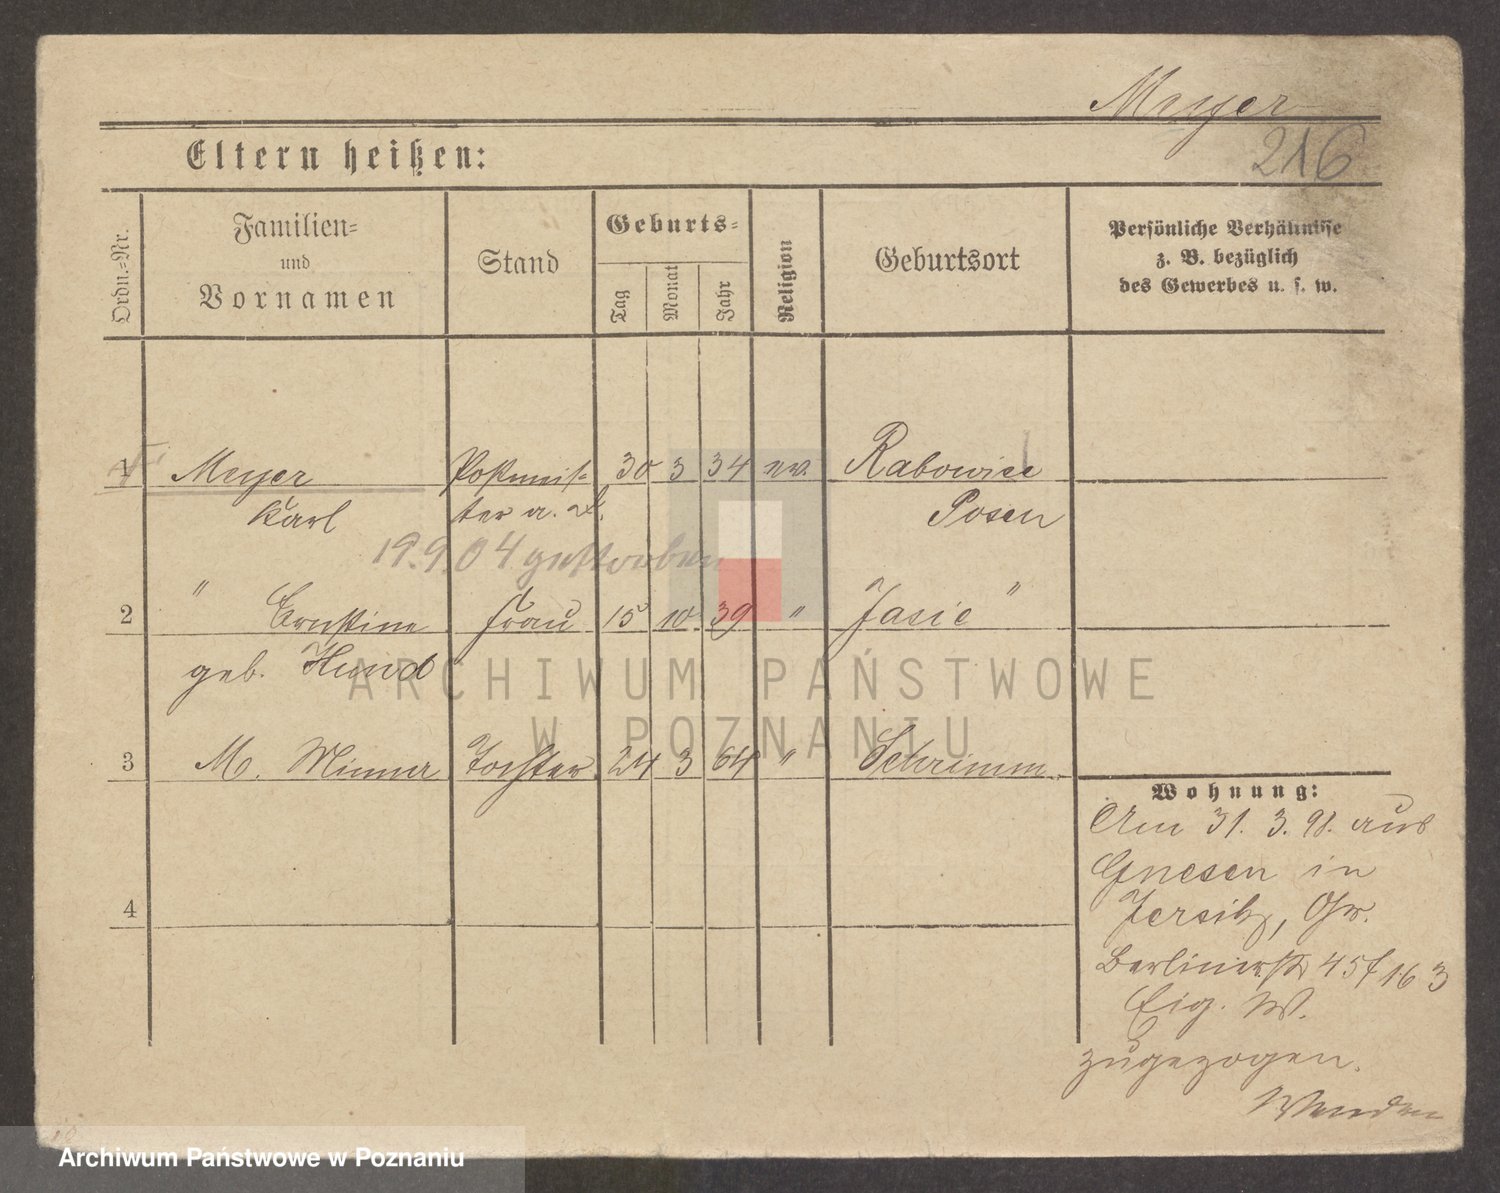 Meyer
216
Eltern heißen:
Ordn.=Nr.
Familien=
und
Vornamen
Stand
Geburts=
Tag
Monat
Jahr
Religion
Geburtsort
Persönliche Verhältnisse
z. B. bezüglich
des Gewerbes u. s. w.
1 Meyer Postmeis= 30 3 34 ev. Rabowice
Karl ter a. D. Posen
19.9.04 gestorben
2 " Ernstine Frau 15 10 39 " Jasic "
geb. Hund
3 M. Minna Tochter 24 3 64 " Schrimm
4
Wohnung:
Am 31. 3. 98. aus
Gnesen in
Jersitz, Gr.
Berlinerstr 45 f 16 3
Eig. W.
zugezogen.
Wenden
ARCHIWUM PAŃSTWOWE
W POZNANIU
Archiwum Państwowe w Poznaniu